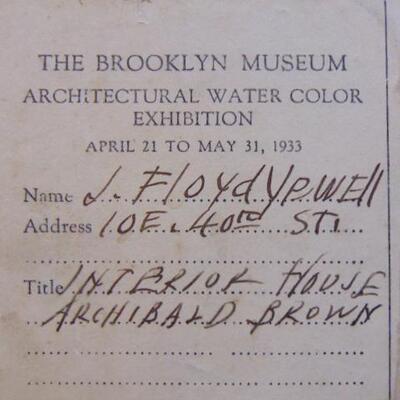 THE BROOKLYN MUSEUM
ARCHITECTURAL WATER COLOR
EXHIBITION
APRIL 21 TO MAY 31, 1933
Name J. Floyd Yewell
Address 10 E. 40th St.
Title INTERIOR HOUSE
ARCHIBALD BROWN